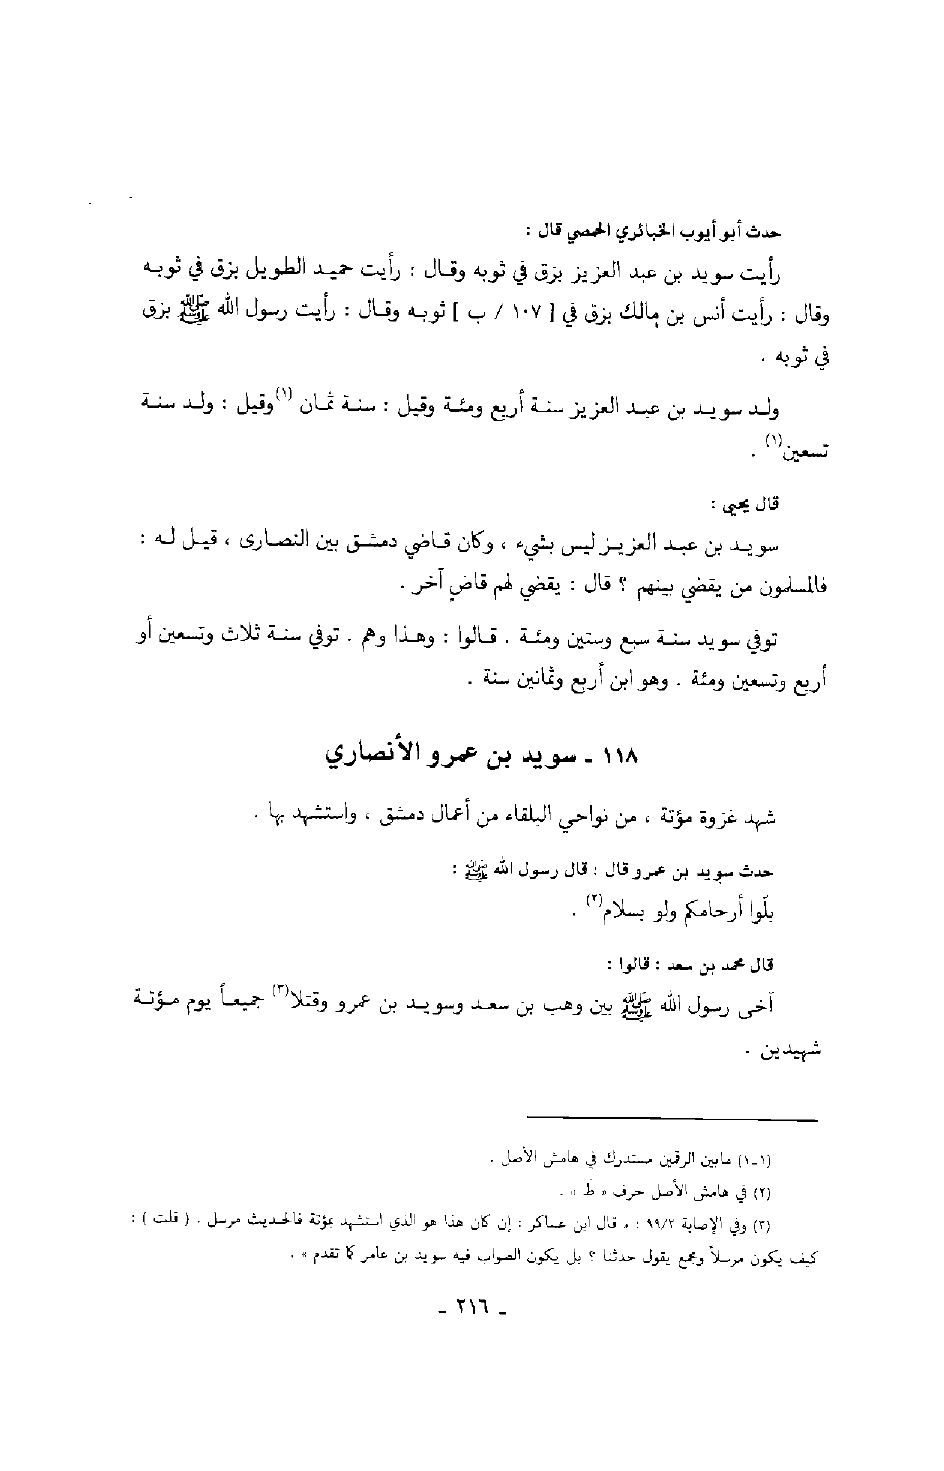 حدث أبو أيوب الخبائري الحمصي قال :
رأيت سويد بن عبد العزيز بزق في ثوبه وقال : رأيت حميد الطويل بزق في ثوبه
وقال : رأيت أنس بن مالك بزق في [ ١٠٧ / ب ] ثوبه وقال : رأيت رسول الله ﷺ بزق
في ثوبه .
ولد سويد بن عبد العزيز سنة أربع ومئة وقيل : سنة ثمان (١)وقيل : ولد سنة
تسعين(١) .
قال يحيى :
سويد بن عبد العزيز ليس بشيء ، وكان قاضي دمشق بين النصارى ، قيل له :
فالمسلمون من يقضي بينهم ؟ قال : يقضي لهم قاضٍ آخر .
توفي سويد سنة سبع وستين ومئة . قالوا : وهذا وهم . توفي سنة ثلاث وتسعين أو
أربع وتسعين ومئة . وهو ابن أربع وثمانين سنة .
١١٨ - سويد بن عمرو الأنصاري
شهد غزوة مؤتة ، من نواحي البلقاء من أعمال دمشق ، واستشهد بها .
حدث سويد بن عمرو قال : قال رسول الله ﷺ :
بلّوا أرحامكم ولو بسلام(٢) .
قال محمد بن سعد : قالوا :
آخى رسول الله ﷺ بين وهب بن سعد وسويد بن عمرو وقتلا(٣) جميعاً يوم مؤتة
شهيدين .
(١-١) مابين الرقمين مستدرك في هامش الأصل .
(٢) في هامش الأصل حرف « ط » .
(٣) وفي الإصابة ٩٩/٢ : « قال ابن عساكر : إن كان هذا هو الذي استشهد بمؤتة فالحديث مرسل . ( قلت ) :
كيف يكون مرسلاً ومجمع يقول حدثنا ؟ بل يكون الصواب فيه سويد بن عامر كما تقدم » .
- ٢١٦ -